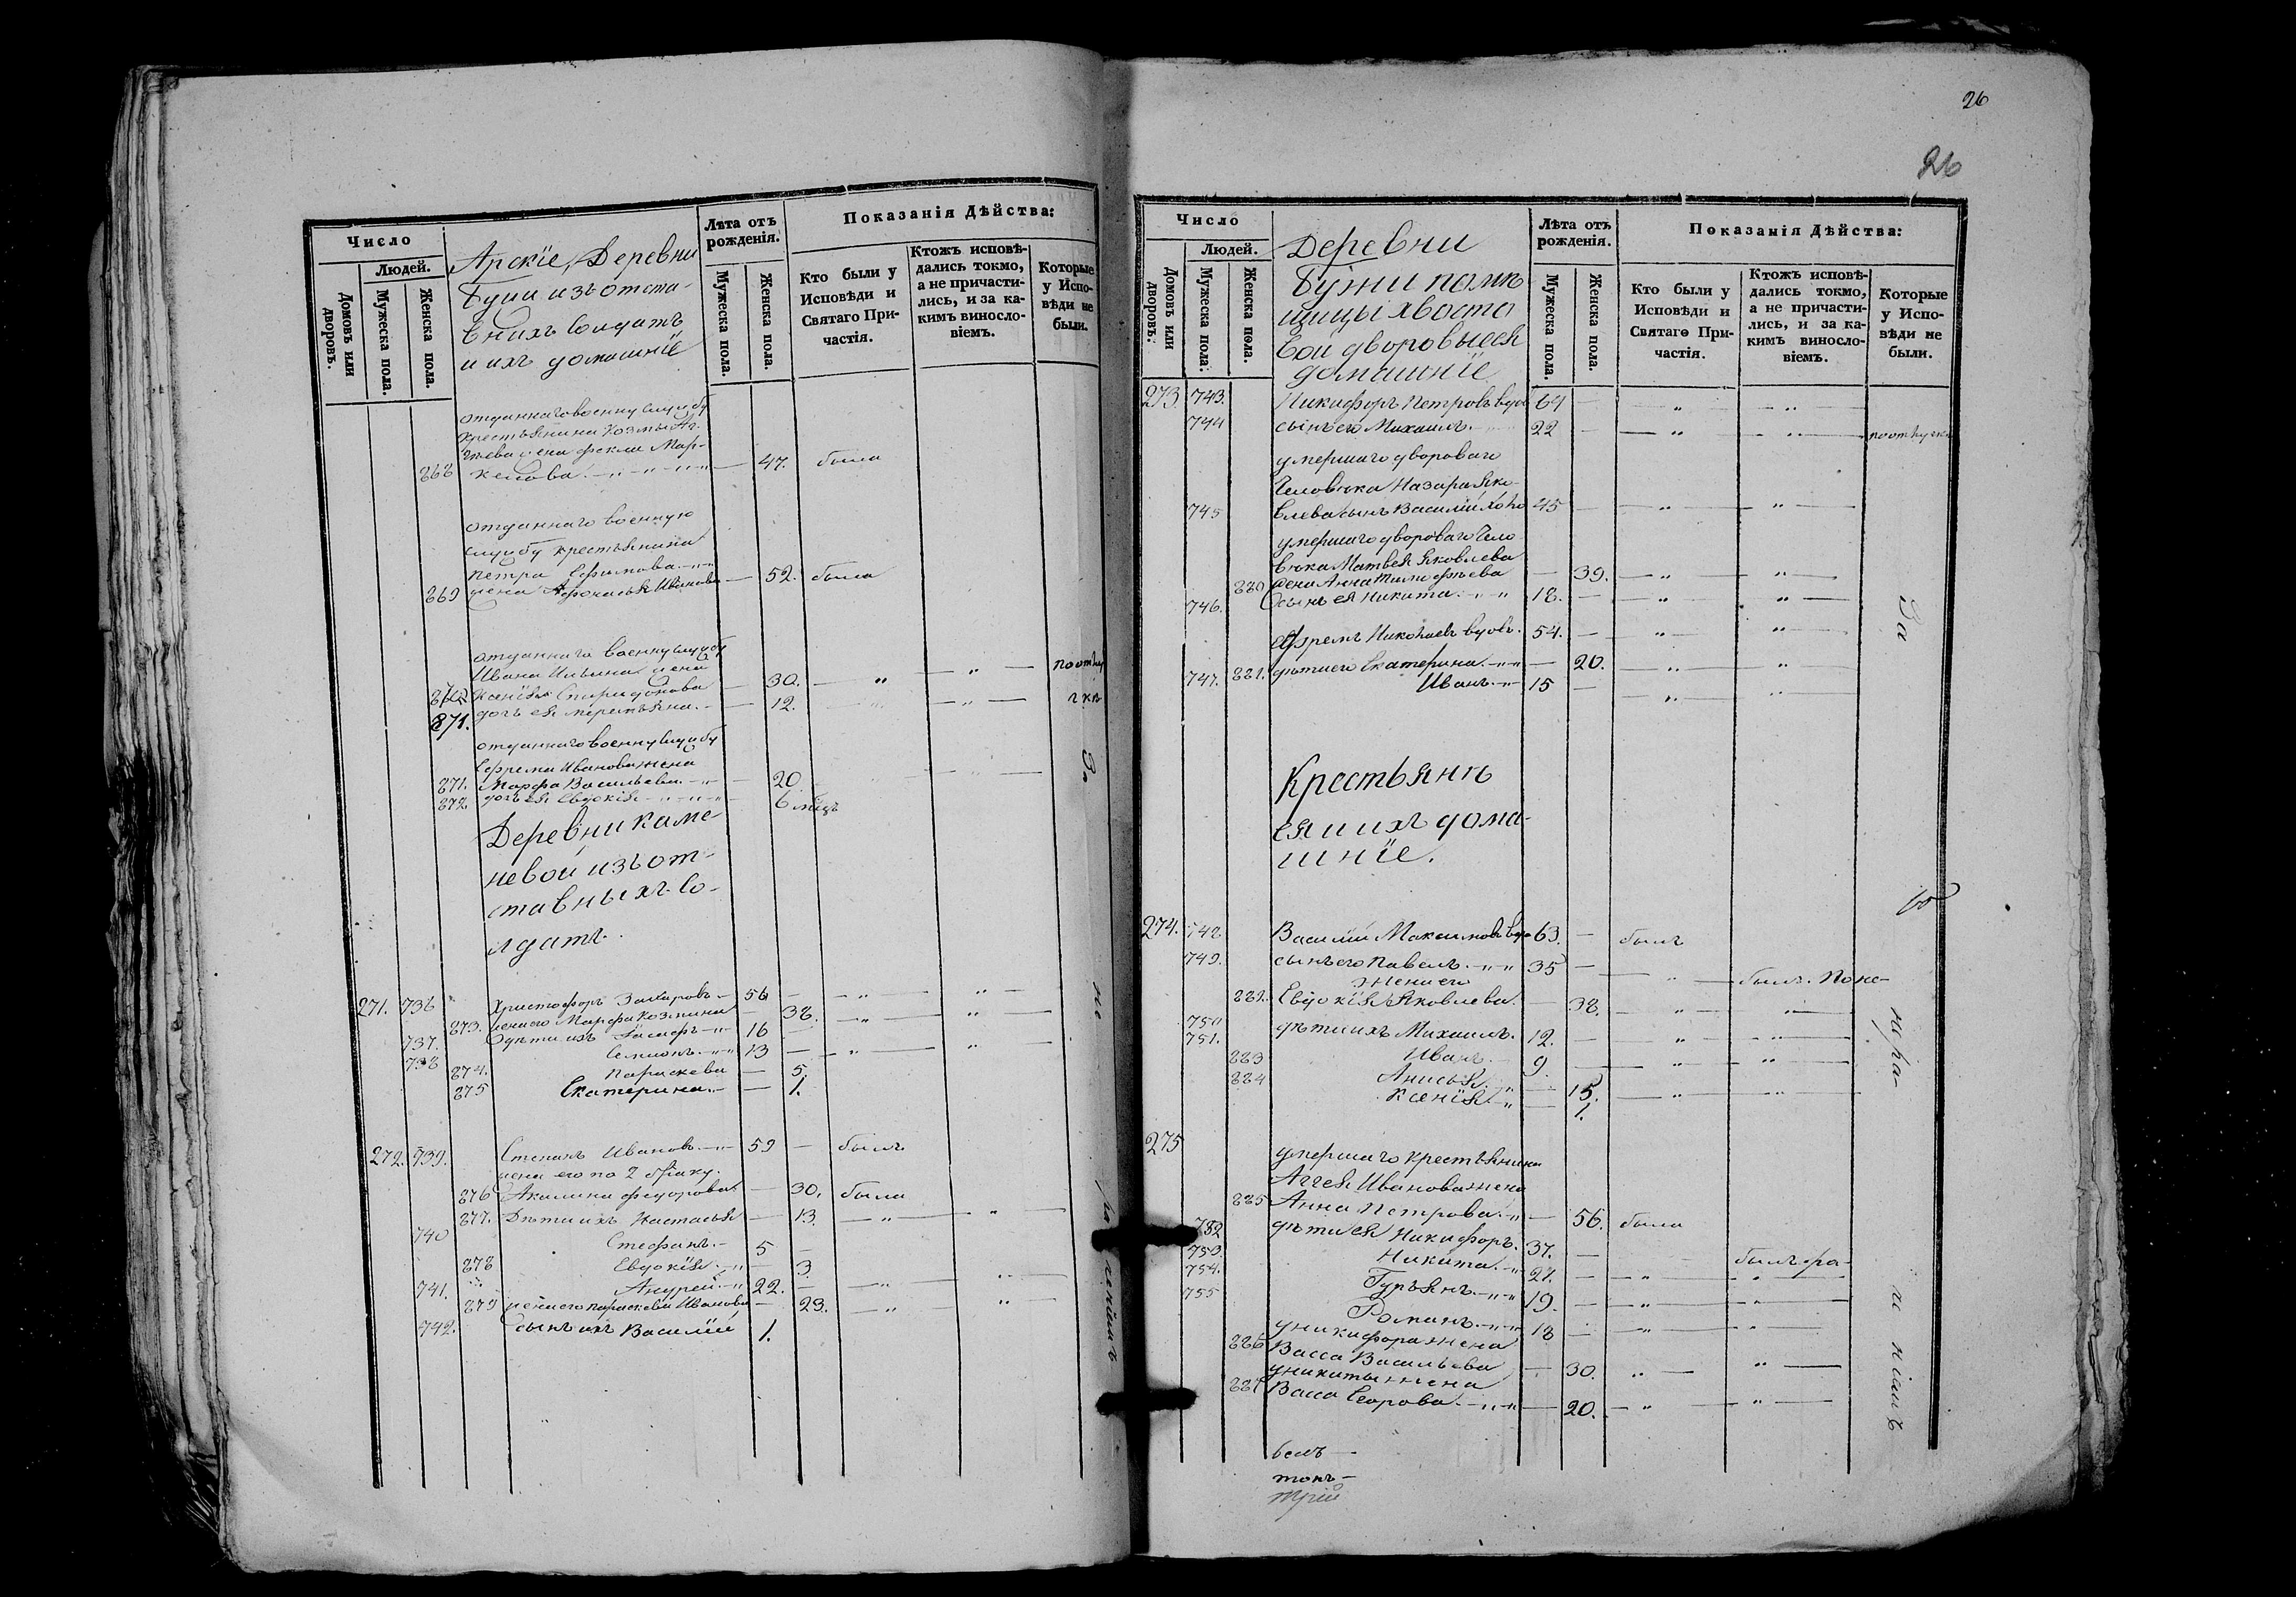 Число
Людей.
Домовъ или дворовъ.
Мужеска пола.
Женска пола.
Арскіе, Деревни
Бужи изъ отста-
вныхъ солдатъ
и ихъ домашніе
Лѣта отъ рожденія.
Мужеска пола.
Женска пола.
Показанія Дѣйства:
Кто были у Исповѣди и Святаго При-частія.
Ктожъ исповѣ-дались токмо, а не причасти-лись, и за ка-кимъ виносло-віемъ.
Которые у Испо-вѣди не были.
отданнаго военну службу
крестьянина Козмы
жена Фекла Мар-
868 келова — 47. была
отданнаго военную
службу крестьянина
Петра Ефимова
869 жена Афонасья Иванова — 52. была
отданнаго военну службу
Ивана Ильина жена
870 Ксенія Спиридонова — 30. — „ — „ — по отлу
871. дочь ея — 12. — „ — чкѣ
отданнаго военну службу
Ефрема Иванова жена
871. Марфа Васильева — 20.
872 дочь ея Евдокія — 6 мцъ
За не
Деревни Каме-
невой изъ от-
ставныхъ со-
лдатъ.
271. 736 Христофоръ Захаровъ — 56 — „ — „
873. жена его Марфа Козмина — 38. — „ — „
737. дѣти ихъ Іосифъ — 16 — „ — „
738 Семионъ — 13 — „ — „
874. Параскева — 5.
875 Екатерина — 1.
272. 739. Степанъ Ивановъ — 59 — былъ
жена его по 2 браку
876 Акилина Федорова — 30. была
877. Дѣти ихъ Настасья — 13. — „ — „
740 Стефанъ — 5 —
878 Евдокія — 3.
741. Андрей — 22. — „ — „
879 жена его Параскева Иванова — 23. — „ — „
742. сынъ ихъ Василій 1.
26
26
Число
Людей.
Домовъ или дворовъ.
Мужеска пола.
Женска пола.
Деревни
Бужи помѣ
щицы Хвосто
вой дворовые
домашніе
Лѣта отъ рожденія.
Мужеска пола.
Женска пола.
Показанія Дѣйства:
Кто были у Исповѣди и Святаго При-частія.
Ктожъ исповѣ-дались токмо, а не причасти-лись, и за ка-кимъ виносло-віемъ.
Которые у Испо-вѣди не были.
273. 743. Никифоръ Петровъ вдов 64 — „ — „
744 сынъ его Михаилъ. 22 — „ — „ — по отлучкѣ
умершаго двороваго
человѣка Назара Яко-
745 влева сынъ Василій 45 — „ — „
умершаго двороваго чело
вѣка Матвея Яковлева
880 жена Анна Тимофѣева — 39. — „ — „
746. сынъ ея Никита — 18. — „ — „
Ефремъ Николаевъ вдовъ. 54. — „ — „
881. дѣти его Екатерина — 20. — „ — „
747. Иванъ — 15 — „ — „
За
Крестьянѣ
ея и ихъ дома-
шніе.
274. 748 Василій Максимовъ вдо 63. — былъ
749. сынъ его Павелъ — 35 — „ — былъ. По не-
жена его
882. Евдокія Яковлева — 38. — „ — „
750 дѣти ихъ Михаилъ. 12. — „ — „
751. Иванъ — 9 — „ — „
883 Анисья — 15. — „ — „
884 Ксенія — 1.
275
умершаго крестьянина
Аггея Иванова жена
885 Анна Петрова — 56. была
752 дѣти ея Никифоръ. 37. —
753. Никита — 27. — „ — „
754. Гурьянъ — 19. — „ — „
755 Романъ — 18 — „ — „
у Никифора жена
886 Васса Васильева — 30. — „ — „
у Никиты жена
887 Васса Егорова — 20. — „ — „